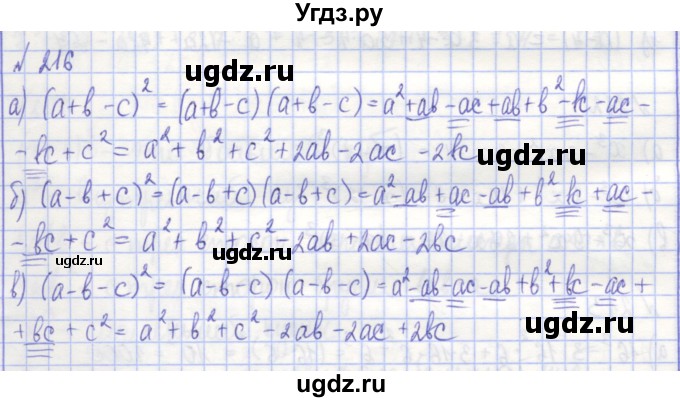 Угдз.ру
№ 216
ugdz.ru
ugdz.ru
а) (a+b-c)² = (a+b-c)(a+b-c) = a²+ab-ac+ab+b²-bc-ac-
-bc+c² = a²+b²+c²+2ab-2ac-2bc
ugdz.ru
ugdz.ru
б) (a-b+c)² = (a-b+c)(a-b+c) = a²-ab+ac-ab+b²-bc+ac-
-bc+c² = a²+b²+c²-2ab+2ac-2bc
ugdz.ru
ugdz.ru
ugdz.ru
в) (a-b-c)² = (a-b-c)(a-b-c) = a²-ab-ac-ab+b²+bc-ac+
+bc+c² = a²+b²+c²-2ab-2ac+2bc
ugdz.ru
ugdz.ru
ugdz.ru